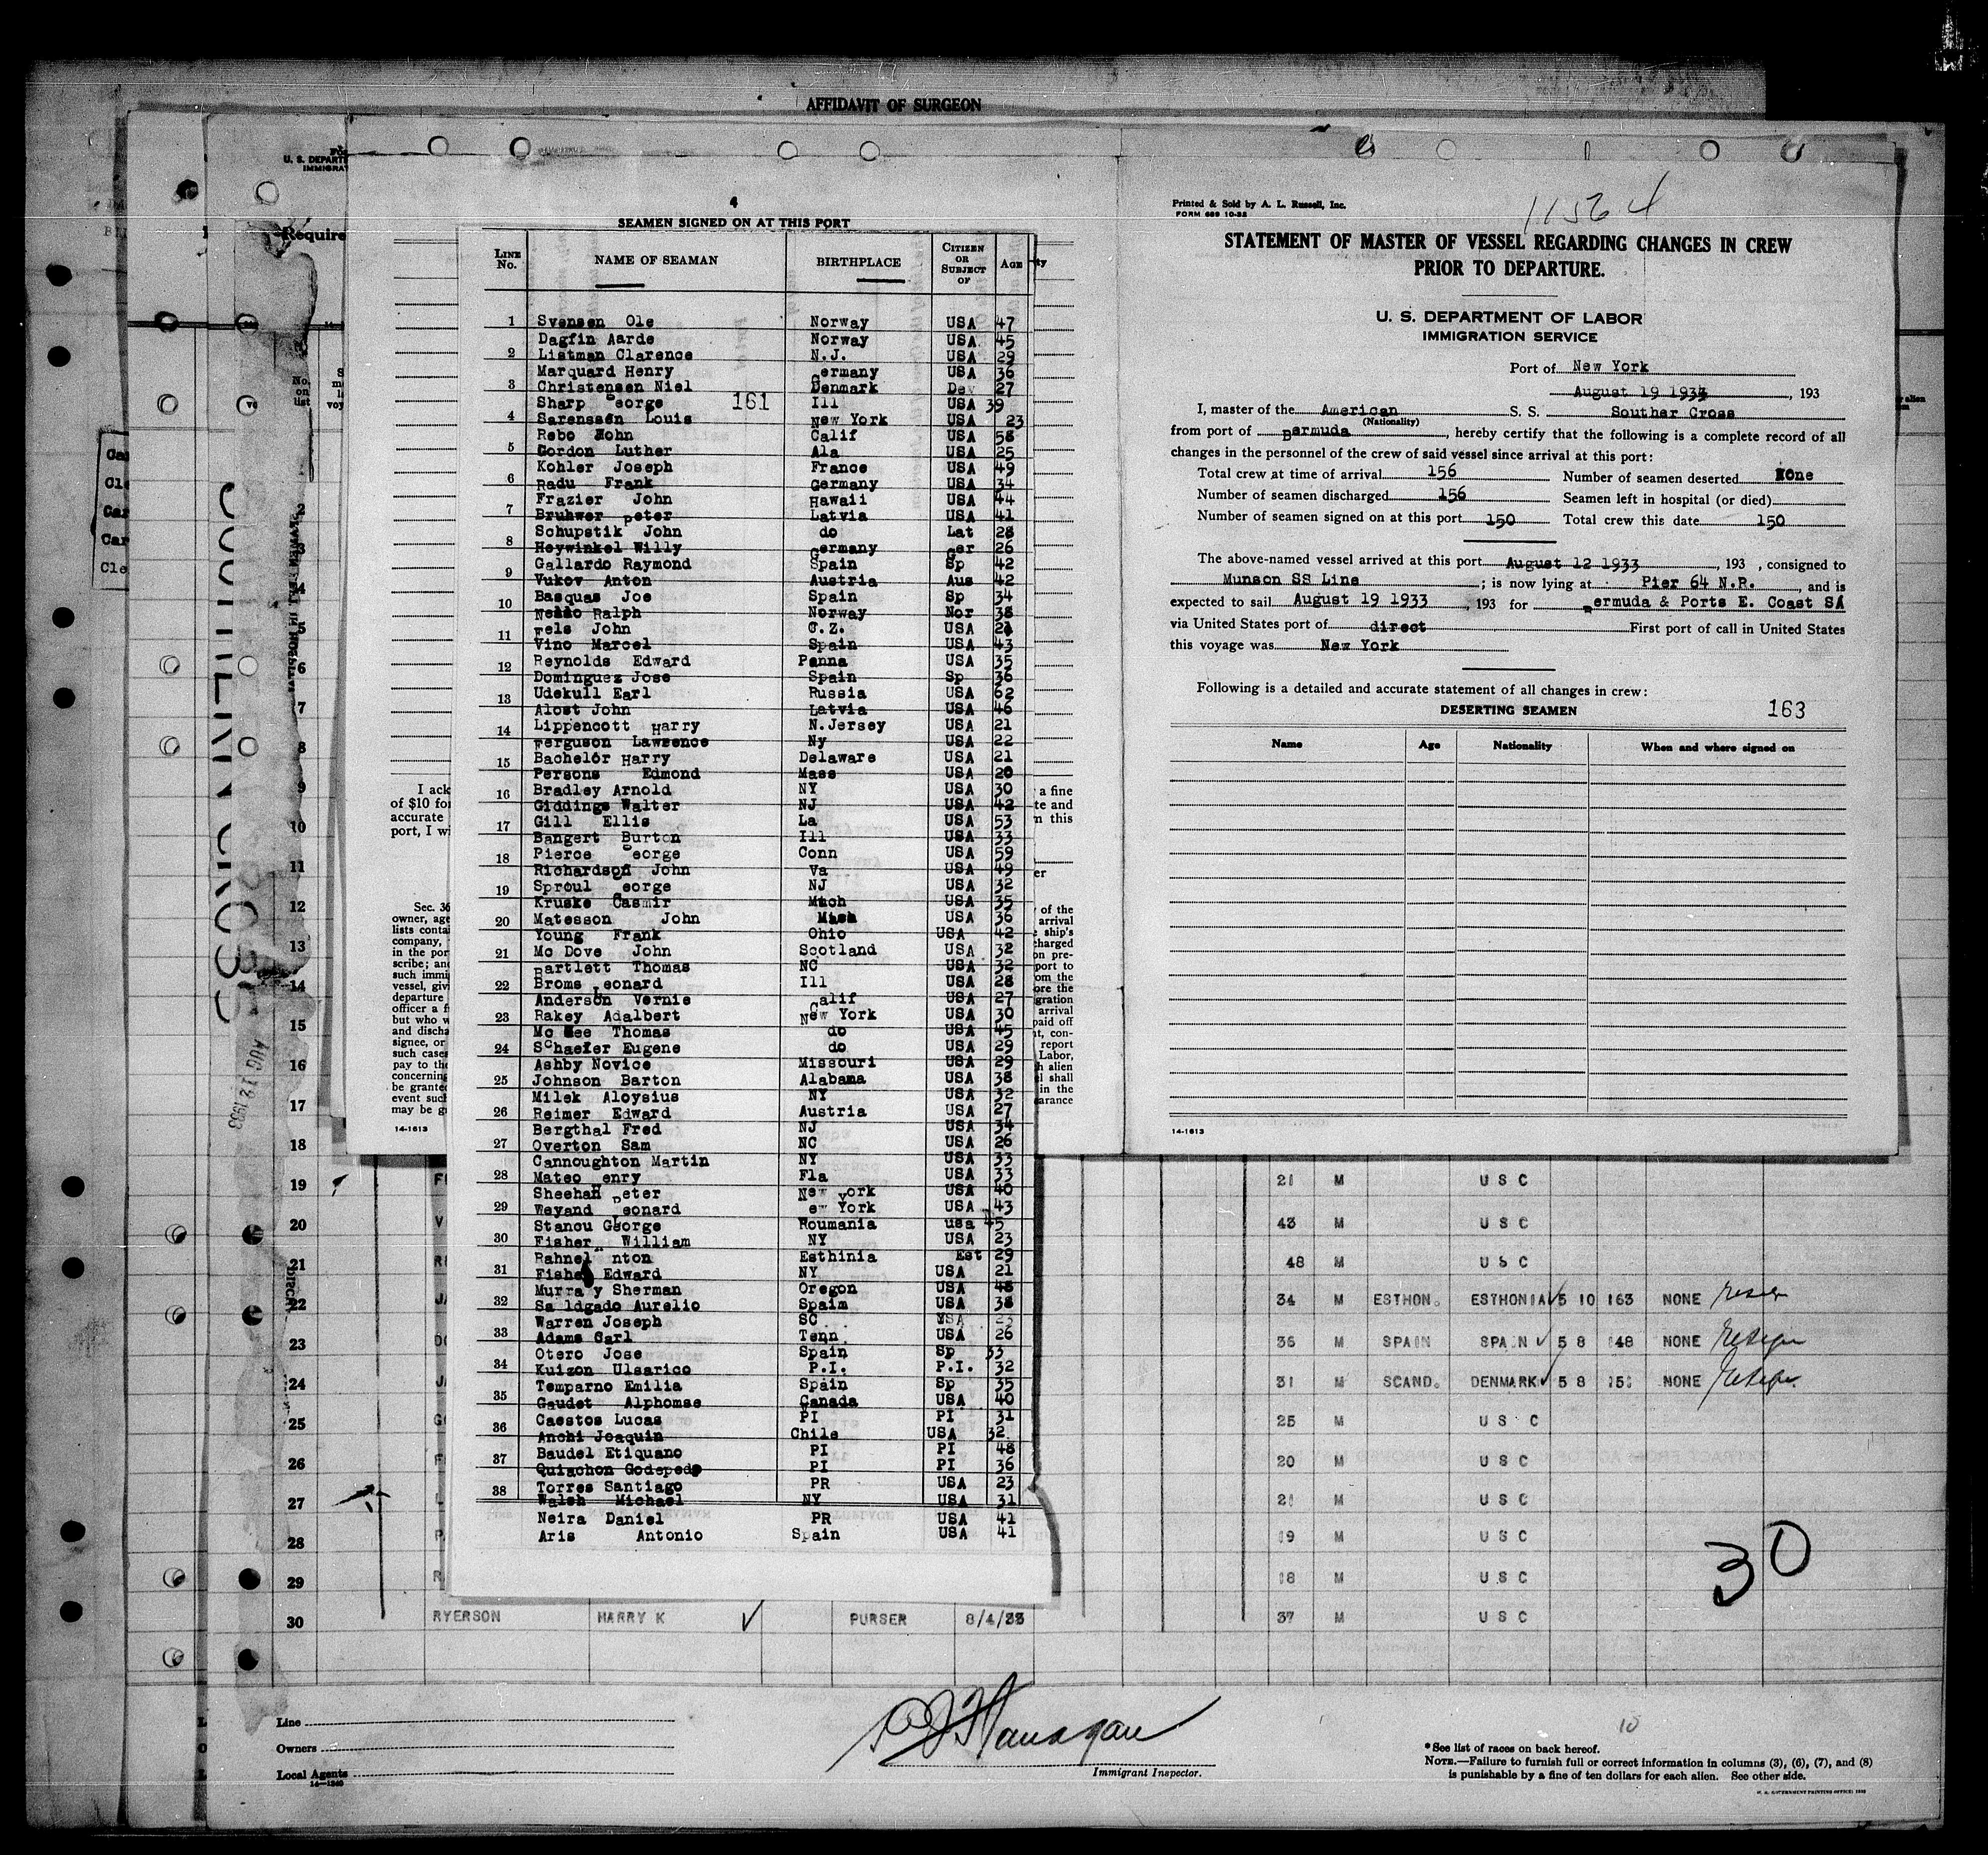 AFFIDAVIT OF SURGEON
U. S. DEPART
IMMIGRAT
Require
4
SEAMEN SIGNED ON AT THIS PORT
LINE No. NAME OF SEAMAN BIRTHPLACE CITIZEN OR SUBJECT OF AGE
1 Svensen Ole Norway USA 47
Dagfin Aarde Norway USA 45
2 Listman Clarence N.J. USA 29
Marquard Henry Germany USA 36
3 Christensen Niel Denmark 27
Sharp George 161 Ill USA 39
4 Sarenssen Louis New York USA 23
Rebo John Calif USA 58
5 Gordon Luther Ala USA 25
Kohler Joseph France USA 49
6 Radu Frank Germany USA 34
Frazier John Hawaii USA 44
7 Bruhwer Peter Latvia USA 41
Schupstik John do Lat 28
8 Heywinkel Willy Germany Ger 26
9 Gallardo Raymond Spain Sp 42
Vukov Anton Austria Aus 42
10 Basquas Joe Spain Sp 34
Ralph Norway Nor 38
11 Fels John C.Z. USA
Vino Marcel Spain USA 43
12 Reynolds Edward Panna USA 35
Dominguez Jose Spain Sp 36
13 Udekull Earl Russia USA 62
Alost John Latvia USA 46
14 Lippencott Harry N.Jersey USA 21
Ferguson Lawrence Ny USA 22
15 Bachelor Harry Delaware USA 21
Persons Edmond Mass USA 20
16 Bradley Arnold NY USA 30
Giddings Walter NJ USA 42
17 Gill Ellis La USA 53
Bangert Burton Ill USA 33
18 Pierce George Conn USA 59
Richardson John Va USA 49
19 Sproul George NJ USA 32
Kruske Casmir Mich USA 35
20 Matesson John Mich USA 36
Young Frank Ohio USA 42
21 Mc Dove John Scotland USA 32
Bartlett Thomas NC USA 32
22 Broms Leonard Ill USA 28
Anderson Vernie Calif USA 27
23 Rakey Adalbert New York USA 30
Mc Gee Thomas do USA 45
24 Schaefer Eugene do USA 29
Ashby Novice Missouri USA 29
25 Johnson Barton Alabama USA 38
Milek Aloysius NY USA 32
26 Reimer Edward Austria USA 27
Bergthal Fred NJ USA 34
27 Overton Sam NC USA 26
Cannoughton Martin NY USA 33
28 Mateo enry Fla USA 33
Sheehan Peter New York USA 40
29 Weyand Leonard ew York USA 43
Stancu George Roumania usa 45
30 Fisher William NY USA 23
Rahnel nton Esthinia Est 29
31 Fisher Edward NY USA 21
Murra y Sherman Oregon USA 48
32 Sa ldgado Aurelio Spaim USA 38
Warren Joseph SC USA 23
33 Adams Carl Tenn USA 26
Otero Jose Spain Sp 33
34 Kuizon Ulsarico P.I. P.I. 32
Temparno Emilia Spain Sp 35
35 Gaudet Alphomse Canada USA 40
Caestos Lucas PI PI 31
36 Anchi Joaquin Chile USA 32
37 Baudel Etiquano PI PI 48
Quiachon Godspeds PI PI 36
38 Torres Santiago PR USA 23
Walsh Michael NY USA 31
Neira Daniel PR USA 41
Aris Antonio Spain USA 41
Printed & Sold by A. L. Russell, Inc.
FORM 689 10-32
11564
STATEMENT OF MASTER OF VESSEL REGARDING CHANGES IN CREW
PRIOR TO DEPARTURE.
U. S. DEPARTMENT OF LABOR
IMMIGRATION SERVICE
Port of New York
August 19 1933, 193
I, master of the American S. S. Souther Cross
(Nationality)
from port of Bermuda, hereby certify that the following is a complete record of all
changes in the personnel of the crew of said vessel since arrival at this port:
Total crew at time of arrival 156 Number of seamen deserted None
Number of seamen discharged 156 Seamen left in hospital (or died)
Number of seamen signed on at this port 150 Total crew this date 150
The above-named vessel arrived at this port August 12 1933, 193 , consigned to
Munson SS Line; is now lying at Pier 64 N.R., and is
expected to sail August 19 1933, 193 for Bermuda & Ports E. Coast SA
via United States port of direct First port of call in United States
this voyage was New York
Following is a detailed and accurate statement of all changes in crew:
DESERTING SEAMEN 163
Name Age Nationality When and where signed on
14-1613
I ack
of $10 for
accurate
port, I wi
Sec. 36
owner, age
lists contai
company,
in the por
scribe; and
such immi
vessel, giv
departure
officer a f
but who w
and discha
signee, or
such cases
pay to the
concerning
be granted
event such
may be gr
14-1613
a fine
te and
n this
er
of the
arrival
ship's
charged
on pre-
port to
om the
ore the
gration
arrival
paid off
nt, con-
report
Labor,
h alien
l shall
in the
earance
AUG 12 1933
21 M U S C
43 M U S C
48 M U S C
34 M ESTHON. ESTHONIA 5 10 163 NONE
36 M SPAIN SPAIN 5 8 148 NONE
31 M SCAND. DENMARK 5 8 151 NONE
25 M U S C
20 M U S C
21 M U S C
19 M U S C
18 M U S C
30
30 RYERSON HARRY K PURSER 8/4/33 37 M U S C
Line
Owners
Local Agents
14-1240
Immigrant Inspector.
10
*See list of races on back hereof.
NOTE.—Failure to furnish full or correct information in columns (3), (6), (7), and (8)
is punishable by a fine of ten dollars for each alien. See other side.